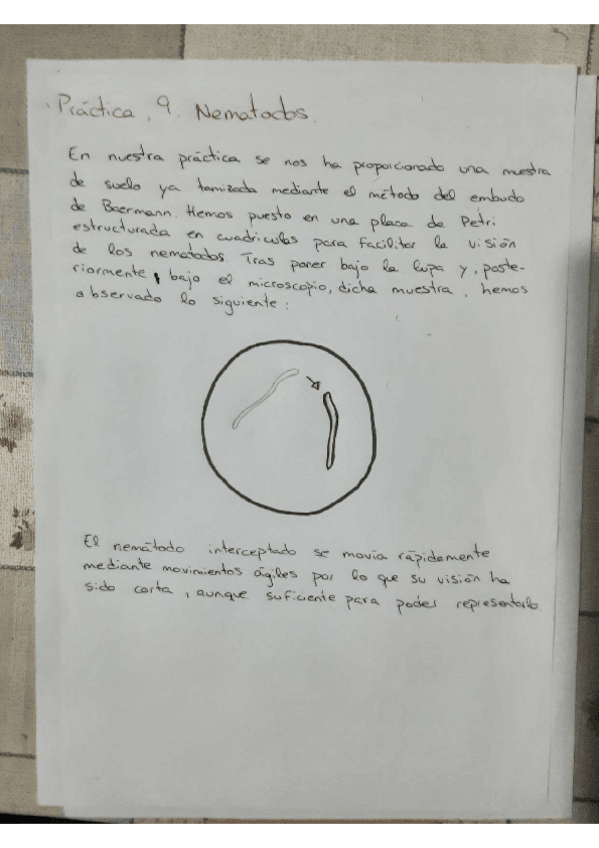 Práctica 9. Nematodos.
En nuestra práctica se nos ha proporcionado una muestra
de suelo ya tamizada mediante el método del embudo
de Baermann. Hemos puesto en una placa de Petri
estructurada en cuadrículas para facilitar la visión
de los nematodos Tras poner bajo la lupa y, poste-
riormente, bajo el microscopio, dicha muestra, hemos
observado lo siguiente:
El nemátodo interceptado se movía rápidamente
mediante movimientos ágiles por lo que su visión ha
sido corta, aunque suficiente para poder representarlo.